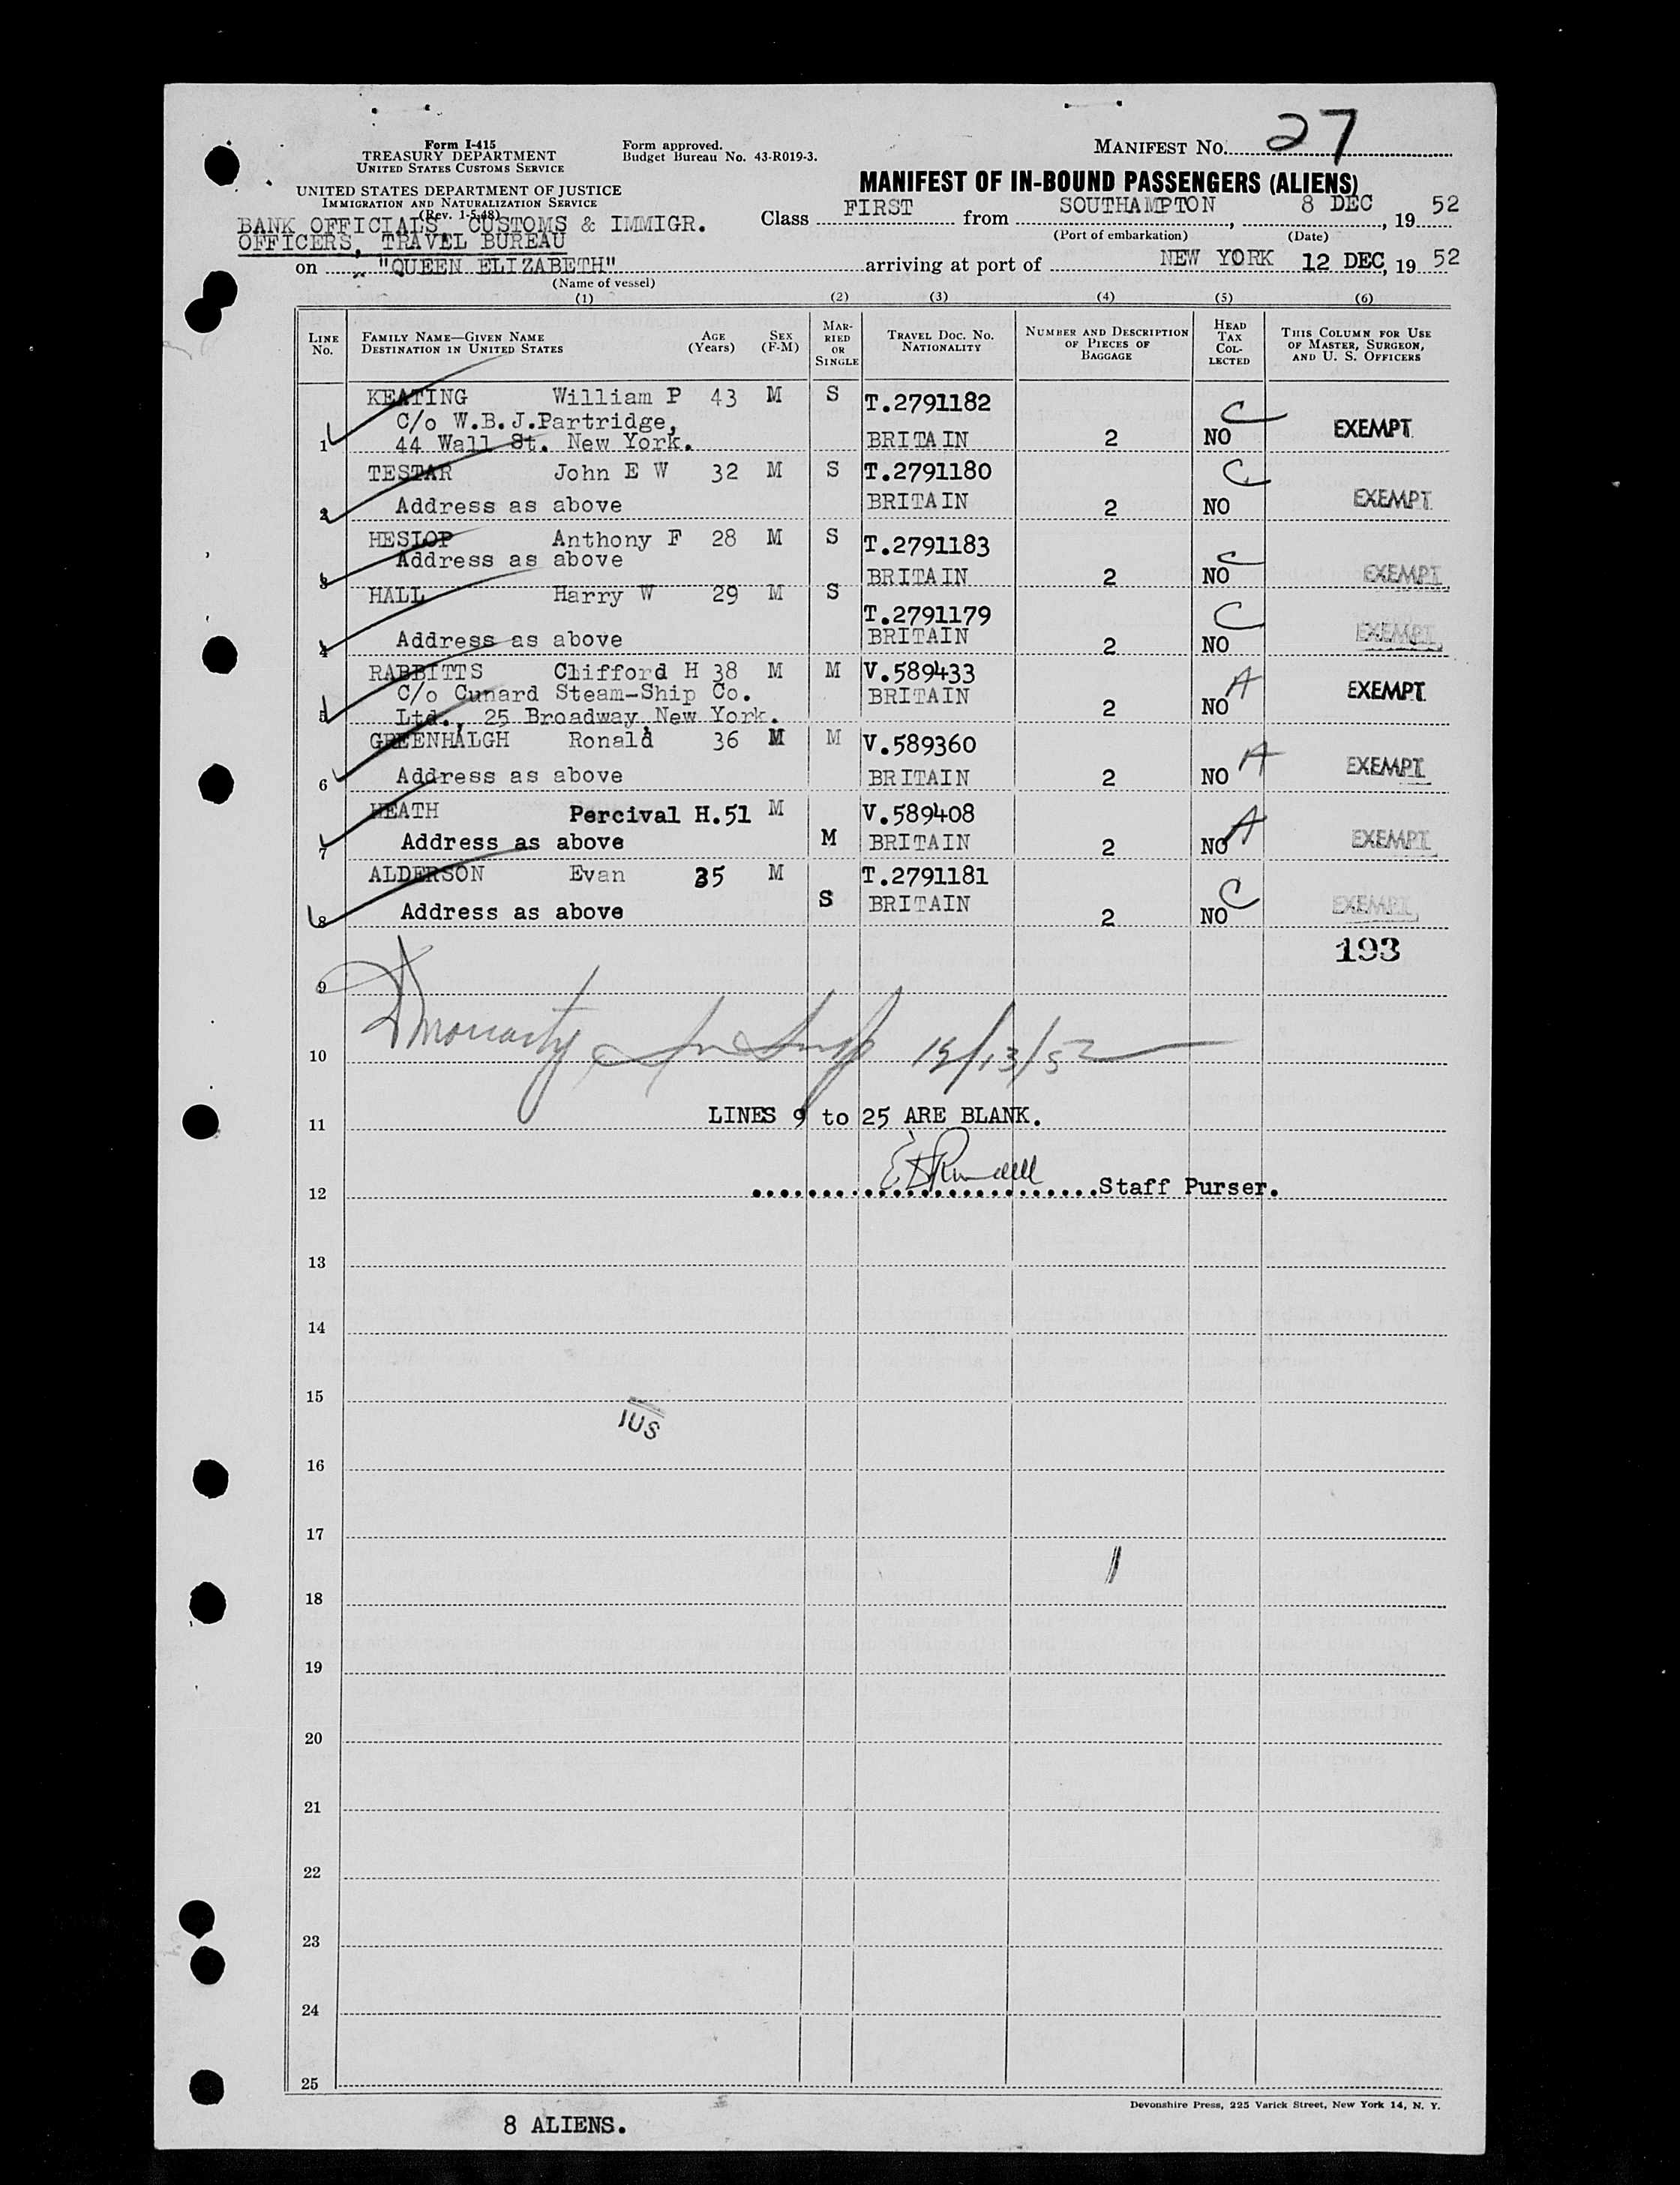 Form I-415
TREASURY DEPARTMENT
UNITED STATES CUSTOMS SERVICE
Form approved.
Budget Bureau No. 43-R019-3.
MANIFEST NO. 27
UNITED STATES DEPARTMENT OF JUSTICE
IMMIGRATION AND NATURALIZATION SERVICE
(Rev. 1-5-48)
MANIFEST OF IN-BOUND PASSENGERS (ALIENS)
BANK OFFICIALS, CUSTOMS & IMMIGR.
OFFICERS, TRAVEL BUREAU
Class FIRST from SOUTHAMPTON, 8 DEC, 19 52
(Port of embarkation) (Date)
on "QUEEN ELIZABETH" arriving at port of NEW YORK 12 DEC, 19 52
(Name of vessel)
(1) (2) (3) (4) (5) (6)
LINE NO.
FAMILY NAME—GIVEN NAME
DESTINATION IN UNITED STATES
AGE (Years)
SEX (F-M)
MARRIED OR SINGLE
TRAVEL DOC. NO.
NATIONALITY
NUMBER AND DESCRIPTION OF PIECES OF BAGGAGE
HEAD TAX COLLECTED
THIS COLUMN FOR USE OF MASTER, SURGEON, AND U. S. OFFICERS
KEATING William P 43 M S T.2791182 C EXEMPT
C/o W.B.J.Partridge,
1 44 Wall St. New York. BRITAIN 2 NO
TESTAR John E W 32 M S T.2791180 C
2 Address as above BRITAIN 2 NO EXEMPT
HESLOP Anthony F 28 M S T.2791183 C
3 Address as above BRITAIN 2 NO EXEMPT
HALL Harry W 29 M S T.2791179 C
4 Address as above BRITAIN 2 NO EXEMPT
RABBITTS Clifford H 38 M M V.589433 A EXEMPT
C/o Cunard Steam-Ship Co. BRITAIN
5 Ltd., 25 Broadway, New York. 2 NO
GREENHALGH Ronald 36 M M V.589360 A
6 Address as above BRITAIN 2 NO EXEMPT
HEATH Percival H. 51 M V.589408 A
7 Address as above M BRITAIN 2 NO EXEMPT
ALDERSON Evan 35 M T.2791181 C
8 Address as above S BRITAIN 2 NO EXEMPT
193
9
10 Moriarty 12/13/52
11 LINES 9 to 25 ARE BLANK.
12 Staff Purser.
13
14
15
IUS
16
17
18
19
20
21
22
23
24
25
Devonshire Press, 225 Varick Street, New York 14, N. Y.
8 ALIENS.